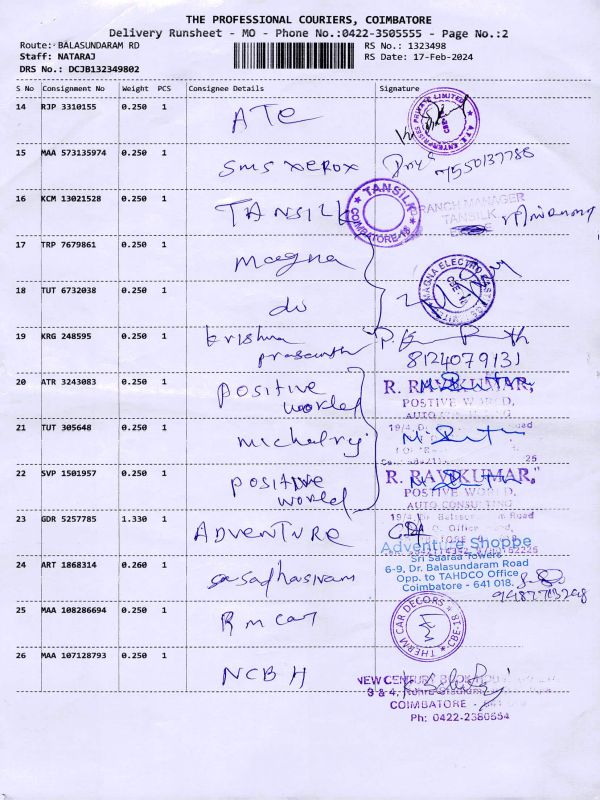 THE PROFESSIONAL COURIERS, COIMBATORE
Delivery Runsheet - MO - Phone No.:0422-3505555 - Page No.:2
Route: BALASUNDARAM RD
Staff: NATARAJ
DRS No.: DCJB132349802
RS No.: 1323498
RS Date: 17-Feb-2024
S No Consignment No Weight PCS Consignee Details Signature
14 RJP 3310155 0.250 1 ATE
A.T.E. ENTERPRISES PRIVATE LIMITED
15 MAA 573135974 0.250 1 SMS XEROX
16 KCM 13021528 0.250 1 TANSILK
TANSILK
COIMBATORE-18
BRANCH MANAGER
TANSILK
17 TRP 7679861 0.250 1 magna
18 TUT 6732038 0.250 1 do
MAGNA ELECTRO
19 KRG 248595 0.250 1 krishna
prasanth
8124079131
20 ATR 3243083 0.250 1 positive
world
R. RAVIKUMAR,
POSTIVE WORLD,
AUTO CONSULTING
21 TUT 305648 0.250 1
22 SVP 1501957 0.250 1 positive
world
R. RAVIKUMAR,
POSTIVE WORLD,
AUTO CONSULTING
23 GDR 5257785 1.330 1 ADVENTURE
Adventure Shoppe
Sri Saaraa Towers
6-9, Dr. Balasundaram Road
Opp. to TAHDCO Office
Coimbatore - 641 018.
24 ART 1868314 0.260 1 sadhasivam
25 MAA 108286694 0.250 1 Rm car
THERM CAR DECORS
CBE-18
26 MAA 107128793 0.250 1 NCBH
NEW CENTURY BOOK HOUSE
COIMBATORE -
Ph: 0422-2380554